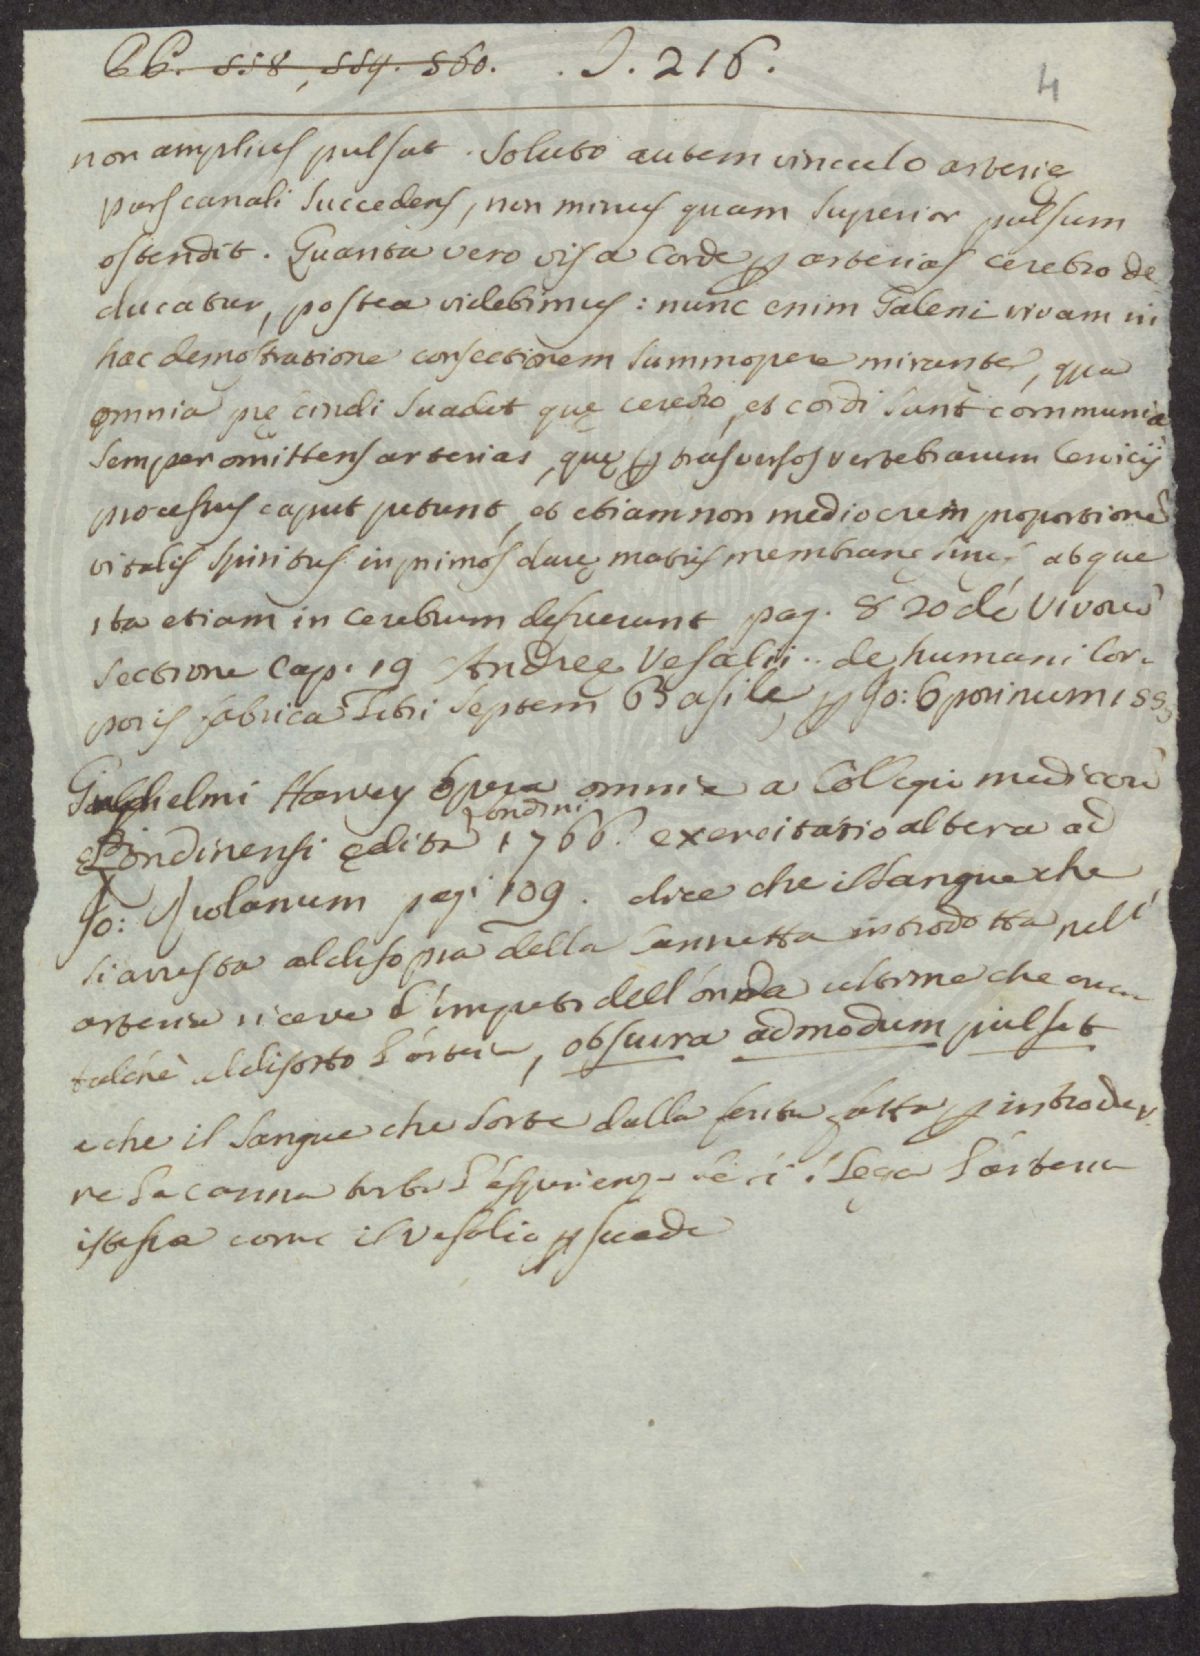 CC. 558, 559. 560. . J. 216.
4
non amplius pulsat. Soluto autem vinculo arterię
pars canali succedens, non minus quam superior pulsum
ostendit. Quanta vero vis a corde p arterias cerebro de
ducatur, postea videbimus: nunc enim Galeni vivam in
hac demostratione consectionem summopere mirantes, qua
omnia pę cindi suadet quę cerebro, et cordi sunt communia
semper omittens arterias, quę p trasversos vertebrarum Cervicis
processus caput petunt, et etiam non mediocrem proportionē
vitalis spiritus in primos durę matris membranę sinus atque
ita etiam in cerebrum deferunt pag. 820 de vivorū
sectione Cap. 19 Andreę Vesalii.. de humani Cor-
poris fabrica Libri septem Basileę p Jo: Oporinum 1555
Gulghielmi Harvey Opera omnia a Collegio medicorū
Londini
Londinensi ędita 1766. exercitatio altera ad
Jo: Riolanum pag: 109. dice che il sangue che
si arresta al disopra della cannetta introdotta nell'
arteria riceve l'impeto dell'onda ultima che
talchè al disotto l'arteria, obscura admodum pulset
e che il sangue che sorte dalla ferita fatta p introdur
re la canna turba l'esperienza lega l'arteria
istessa come il Vesalio psuade